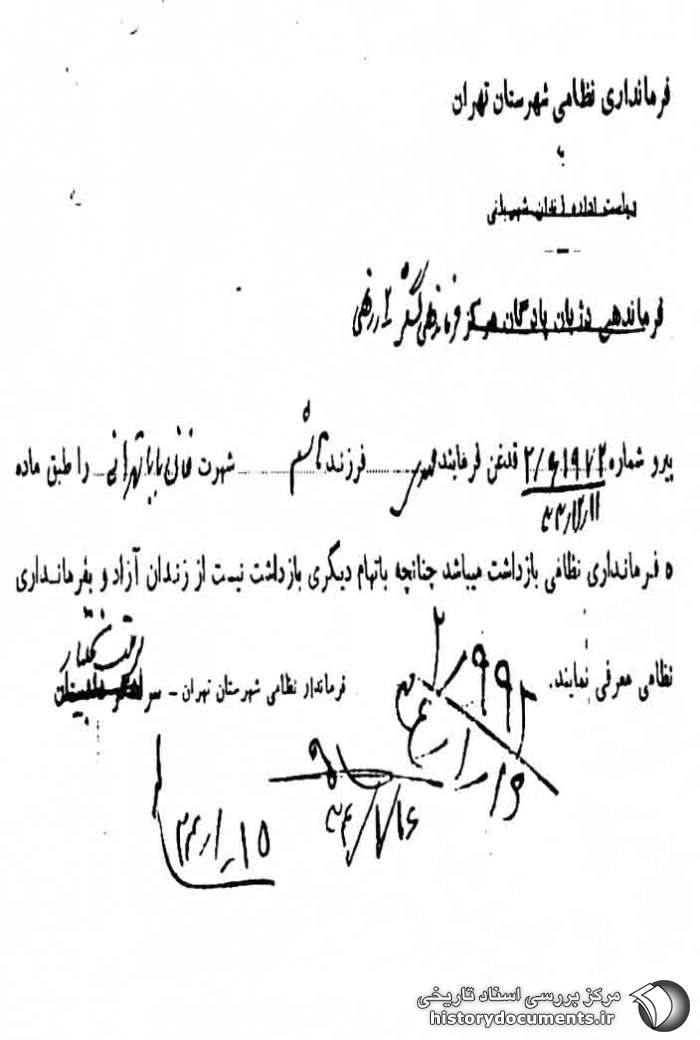 فرمانداری نظامی شهرستان تهران
به
ریاست اداره زندان شهربانی
فرماندهی دژبان پادگان مرکز فرماندهی لشگر ۲ زرهی
پیرو شماره ۲/و۱۹۷۲ قدغن فرمایند فرزند هاشم شهرت تهرانی را طبق ماده
۳۴/۲/۱۱
۵ فرمانداری نظامی بازداشت میباشد چنانچه باتهام دیگری بازداشت نیست از زندان آزاد و بفرمانداری
نظامی معرفی نمایند.
فرماندار نظامی شهرستان تهران - سر بختیار
۳۴/۱/۱۶
۳۴/۱/۱۵
مرکز بررسی اسناد تاریخی
historydocuments.ir